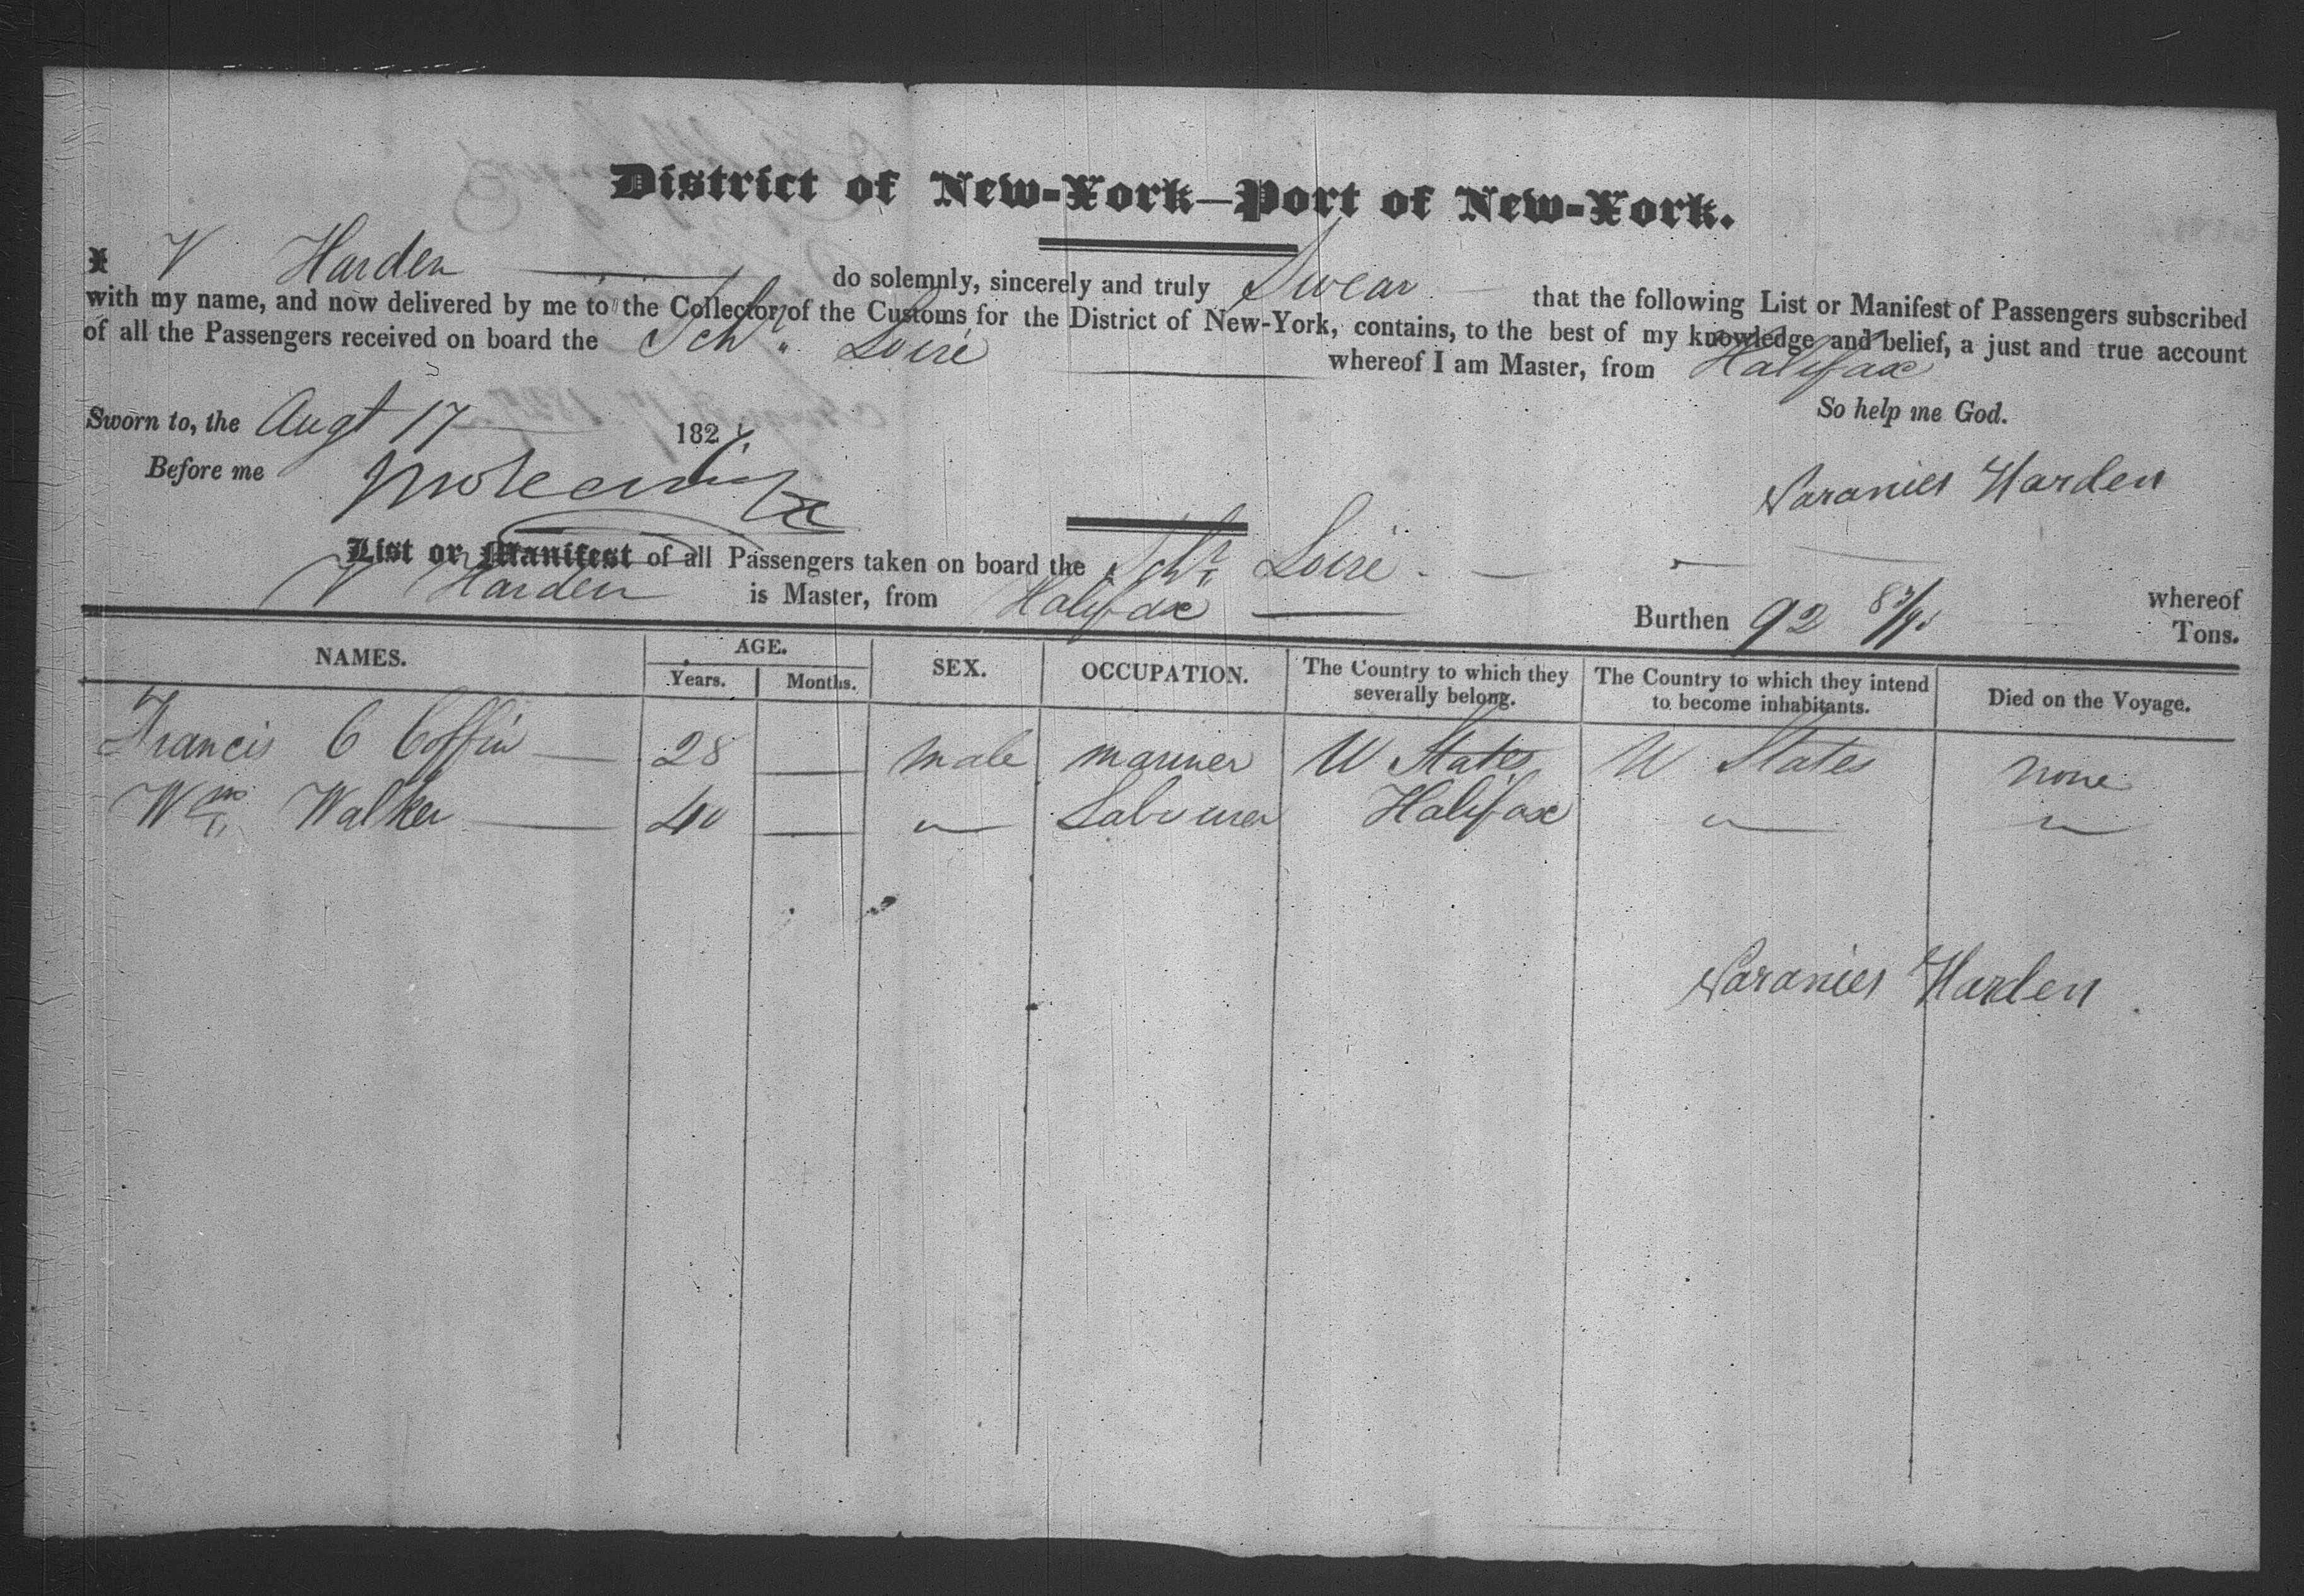 District of New-York—Port of New-York.
I V Harden do solemnly, sincerely and truly Swear that the following List or Manifest of Passengers subscribed
with my name, and now delivered by me to the Collector of the Customs for the District of New-York, contains, to the best of my knowledge and belief, a just and true account
of all the Passengers received on board the Schr Loire whereof I am Master, from Halifax
So help me God.
Sworn to, the Augt 17 182
Before me
Harden
List or Manifest of all Passengers taken on board the Schr Loire whereof
V Harden is Master, from Halifax Burthen 92 Tons.
NAMES. AGE. SEX. OCCUPATION. The Country to which they severally belong. The Country to which they intend to become inhabitants. Died on the Voyage.
Years. Months.
Francis C Coffin 28 male mariner U States U States none
Wm Walker 40 " Labourer Halifax " "
Harden